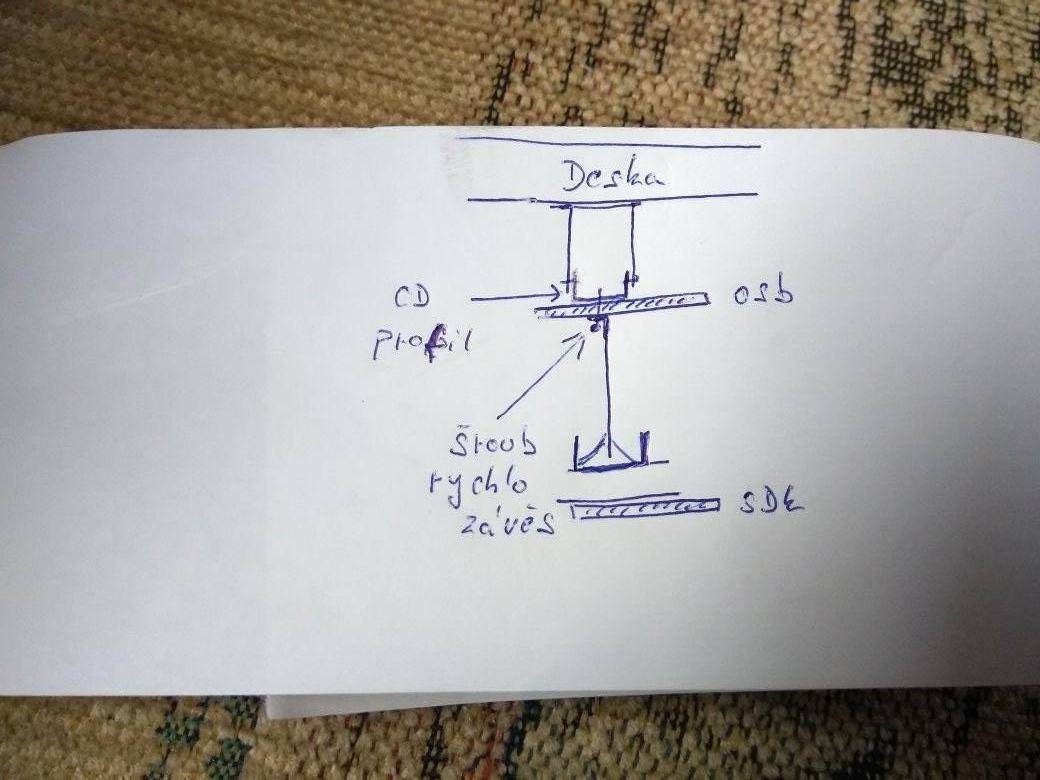 Deska
CD
profil
osb
Šroub
rychlo
závěs
SDK